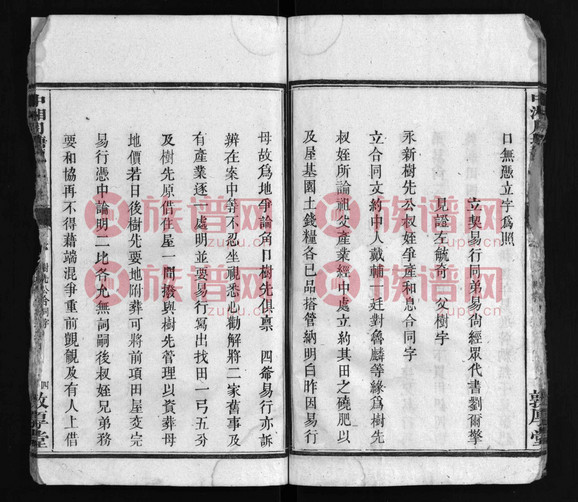 口無慿立字爲照
立契易行同弟易尙經眾代書劉爾拏
見證左毓奇 父樹字
永新樹先公叔姪爭產和息合同字
立合同文約中人戴輔一廷對魯麟等緣爲樹先
叔姪所論祖父產業經中處立約其田之磽肥以
及屋基園土錢糧各已品搭管納明白昨因易行
母故爲地爭論角口樹先俱稟 四爺易行亦訴
辨在案中等不忍坐視悉心勸解將二家舊事及
有產業逐一處明並要易行寫出找田一弓五分
及樹先原借住屋一間撥與樹先管理以資葬母
地價若日後樹先要地附葬可將前項田屋變完
易行憑中論明二比各允無詞嗣後叔姪兄弟務
要和協再不得藉端混爭重前覬覦及有人上借
四
敦厚堂
敦厚堂
族谱网
zupu.cn
族谱网
zupu.cn
族谱网
zupu.cn
族谱网
zupu.cn